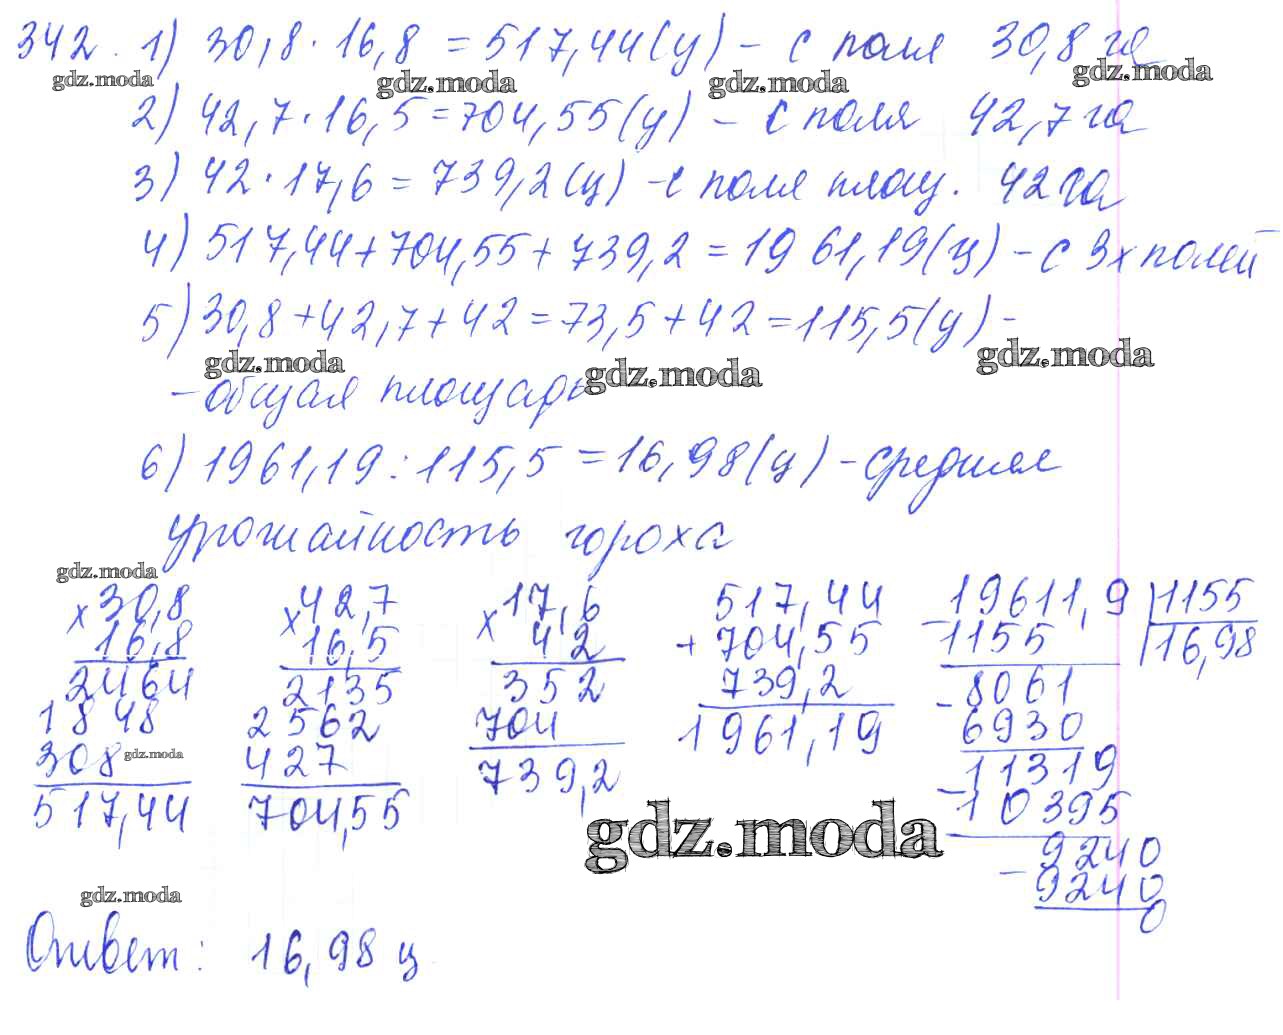 342. 1) 30,8 · 16,8 = 517,44 (ц) – с поля 30,8 га
gdz.moda gdz.moda gdz.moda gdz.moda
2) 42,7 · 16,5 = 704,55 (ц) – с поля 42,7 га
3) 42 · 17,6 = 739,2 (ц) – с поля площ. 42 га
4) 517,44 + 704,55 + 739,2 = 1961,19 (ц) – с 3х полей
5) 30,8 + 42,7 + 42 = 73,5 + 42 = 115,5 (ц) –
gdz.moda gdz.moda gdz.moda
– общая площадь
6) 1961,19 : 115,5 = 16,98 (ц) – средняя
урожайность гороха
gdz.moda
× 30,8
16,8
2464
1848
308
gdz.moda
517,44
× 42,7
16,5
2135
2562
427
704,55
× 17,6
42
352
704
739,2
517,44
+ 704,55
739,2
1961,19
– 19611,9 | 1155
1155 | 16,98
– 8061
6930
– 11319
10395
– 9240
9240
0
gdz.moda
gdz.moda
Ответ: 16,98 ц